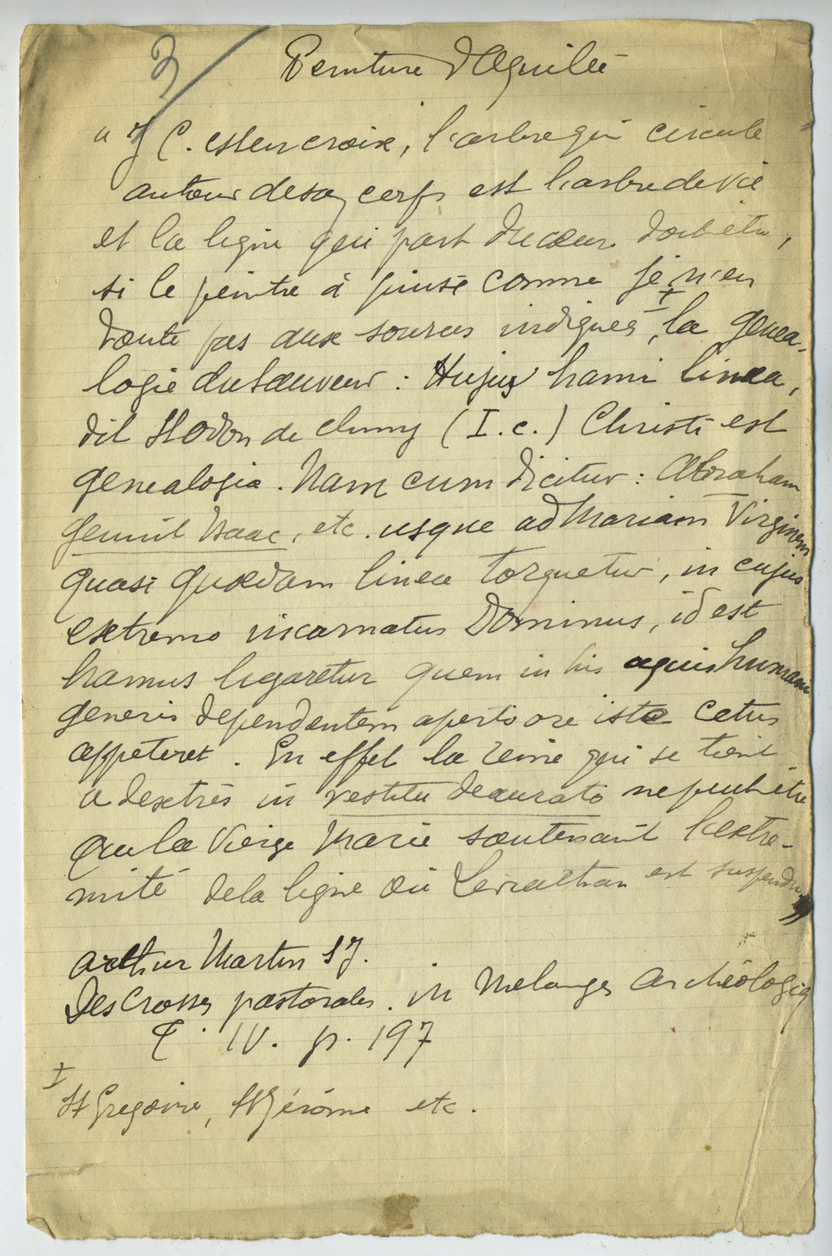 3/
Peinture d'Aquilée
" J C. est en croix, l'arbre qui circule
autour de son corps est l'arbre de vie
et la ligne qui part du cœur doit être,
si le peintre à puisé comme je n'en
doute pas aux sources indiquées +, la généa-
logie du Sauveur : Hujus hami linea,
dit St Odon de Cluny (I. c.) Christi est
genealogia. Nam cum dicitur : Abraham
genuit Isaac, etc. usque ad Mariam Virginem
quasi quædam linea torquetur, in cujus
extremo incarnatus Dominus, id est
hamus ligaretur quem in his aquis humani
generis dependentem aperto ore iste cetus
appeteret. En effet la reine qui se tient
a dextris in vestitu deaurato ne peut être
que la Vierge Marie soutenant l'extré-
mité de la ligne où Leviathan est suspendu "
Arthur Martin S J.
Des Crosses pastorales. in Melanges Archéologiq
T. IV. p. 197
+
St Grégoire, St Jérôme etc.